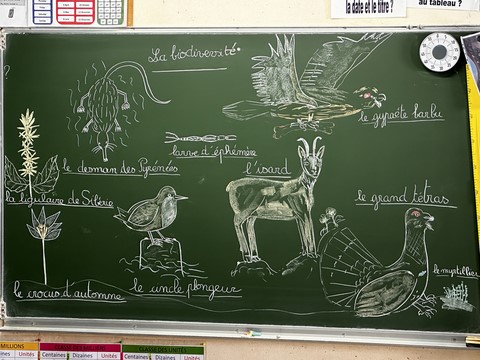 la date et le titre ?
au tableau ?
La biodiversité
?
le gypaète barbu
larve d'éphémère
le desman des Pyrénées
l'isard
la ligulaire de Sibérie
le grand tétras
le myrtillier
le crocus d'automne
le cincle plongeur
MILLIONS
CLASSE DES MILLIERS
CLASSE DES UNITÉS
Unités
Centaines
Dizaines
Unités
Centaines
Dizaines
Unités